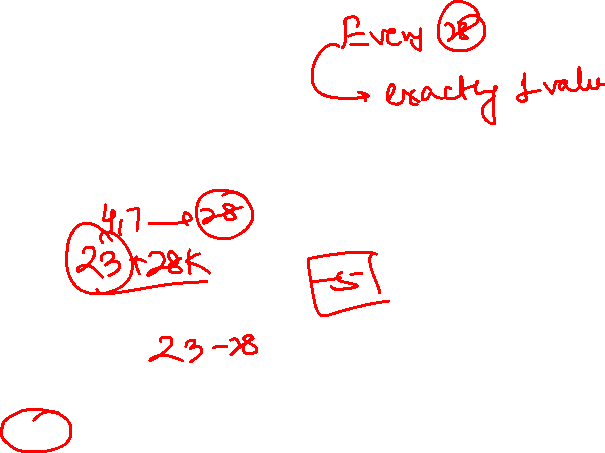 Every 28
→ exactly 1 value
4,7 → 28
23 + 28K
-5
23-28